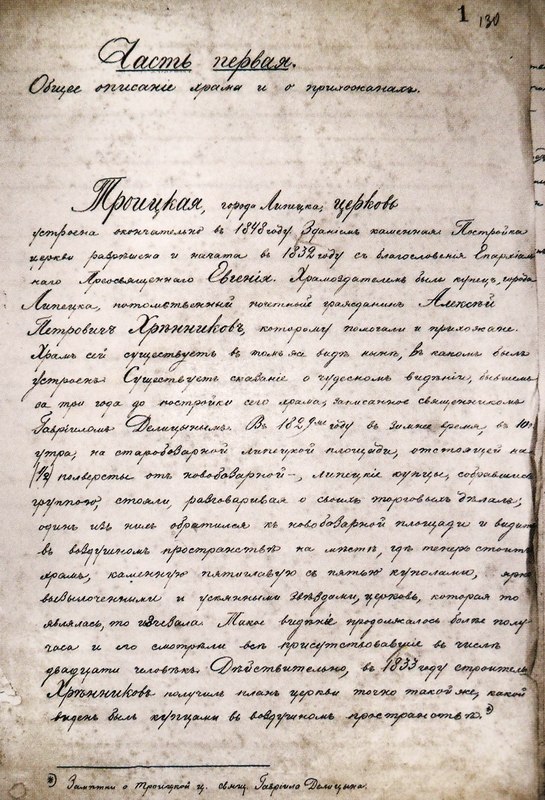 1 130
Часть первая.
Общее описаніе храма и о прихожанахъ.
Троицкая, города Липецка, церковь
устроена окончательно въ 1848 году. Зданіемъ каменная. Постройка
церкви разрѣшена и начата въ 1832 году съ благословенія Епархіаль
наго Преосвященнаго Евгенія. Храмоздателемъ былъ купецъ, города
Липецка, потомственный почетный гражданинъ Алексѣй
Петровичъ Хрѣнниковъ, которому помогали и прихожане.
Храмъ сей существуетъ въ томъ же видѣ нынѣ, въ какомъ былъ
устроенъ. Существуетъ сказаніе о чудесномъ видѣніи, бывшемъ
за три года до постройки сего храма, записанное священникомъ
Гавріиломъ Делицынымъ. Въ 1829мъ году въ зимнее время, въ 10ч
утра, на старобазарной липецкой площади, отстоящей на
(1/2) полверсты отъ новобазарной –, липецкіе купцы, собравшись
группою, стояли, разговаривая о своихъ торговыхъ дѣлахъ;
одинъ изъ нихъ обратился къ новобазарной площади и видитъ
въ воздушномъ пространствѣ на мѣстѣ, гдѣ теперь стоитъ
храмъ, каменную пятиглавую съ пятью куполами, ярко
вызолоченными и усѣянными звѣздами, церковь, которая то
являлась, то изчезала. Такое видѣніе продолжалось болѣе полу
часа и его смотрѣли всѣ присутствовавшіе въ числѣ
двадцати человѣкъ. Дѣйствительно, въ 1833 году строитель
Хрѣнниковъ получилъ планъ церкви точно такой же, какой
видѣнъ былъ купцами въ воздушномъ пространствѣ.*)
*) Замѣтки о Троицкой ц. свящ. Гавріила Делицына.